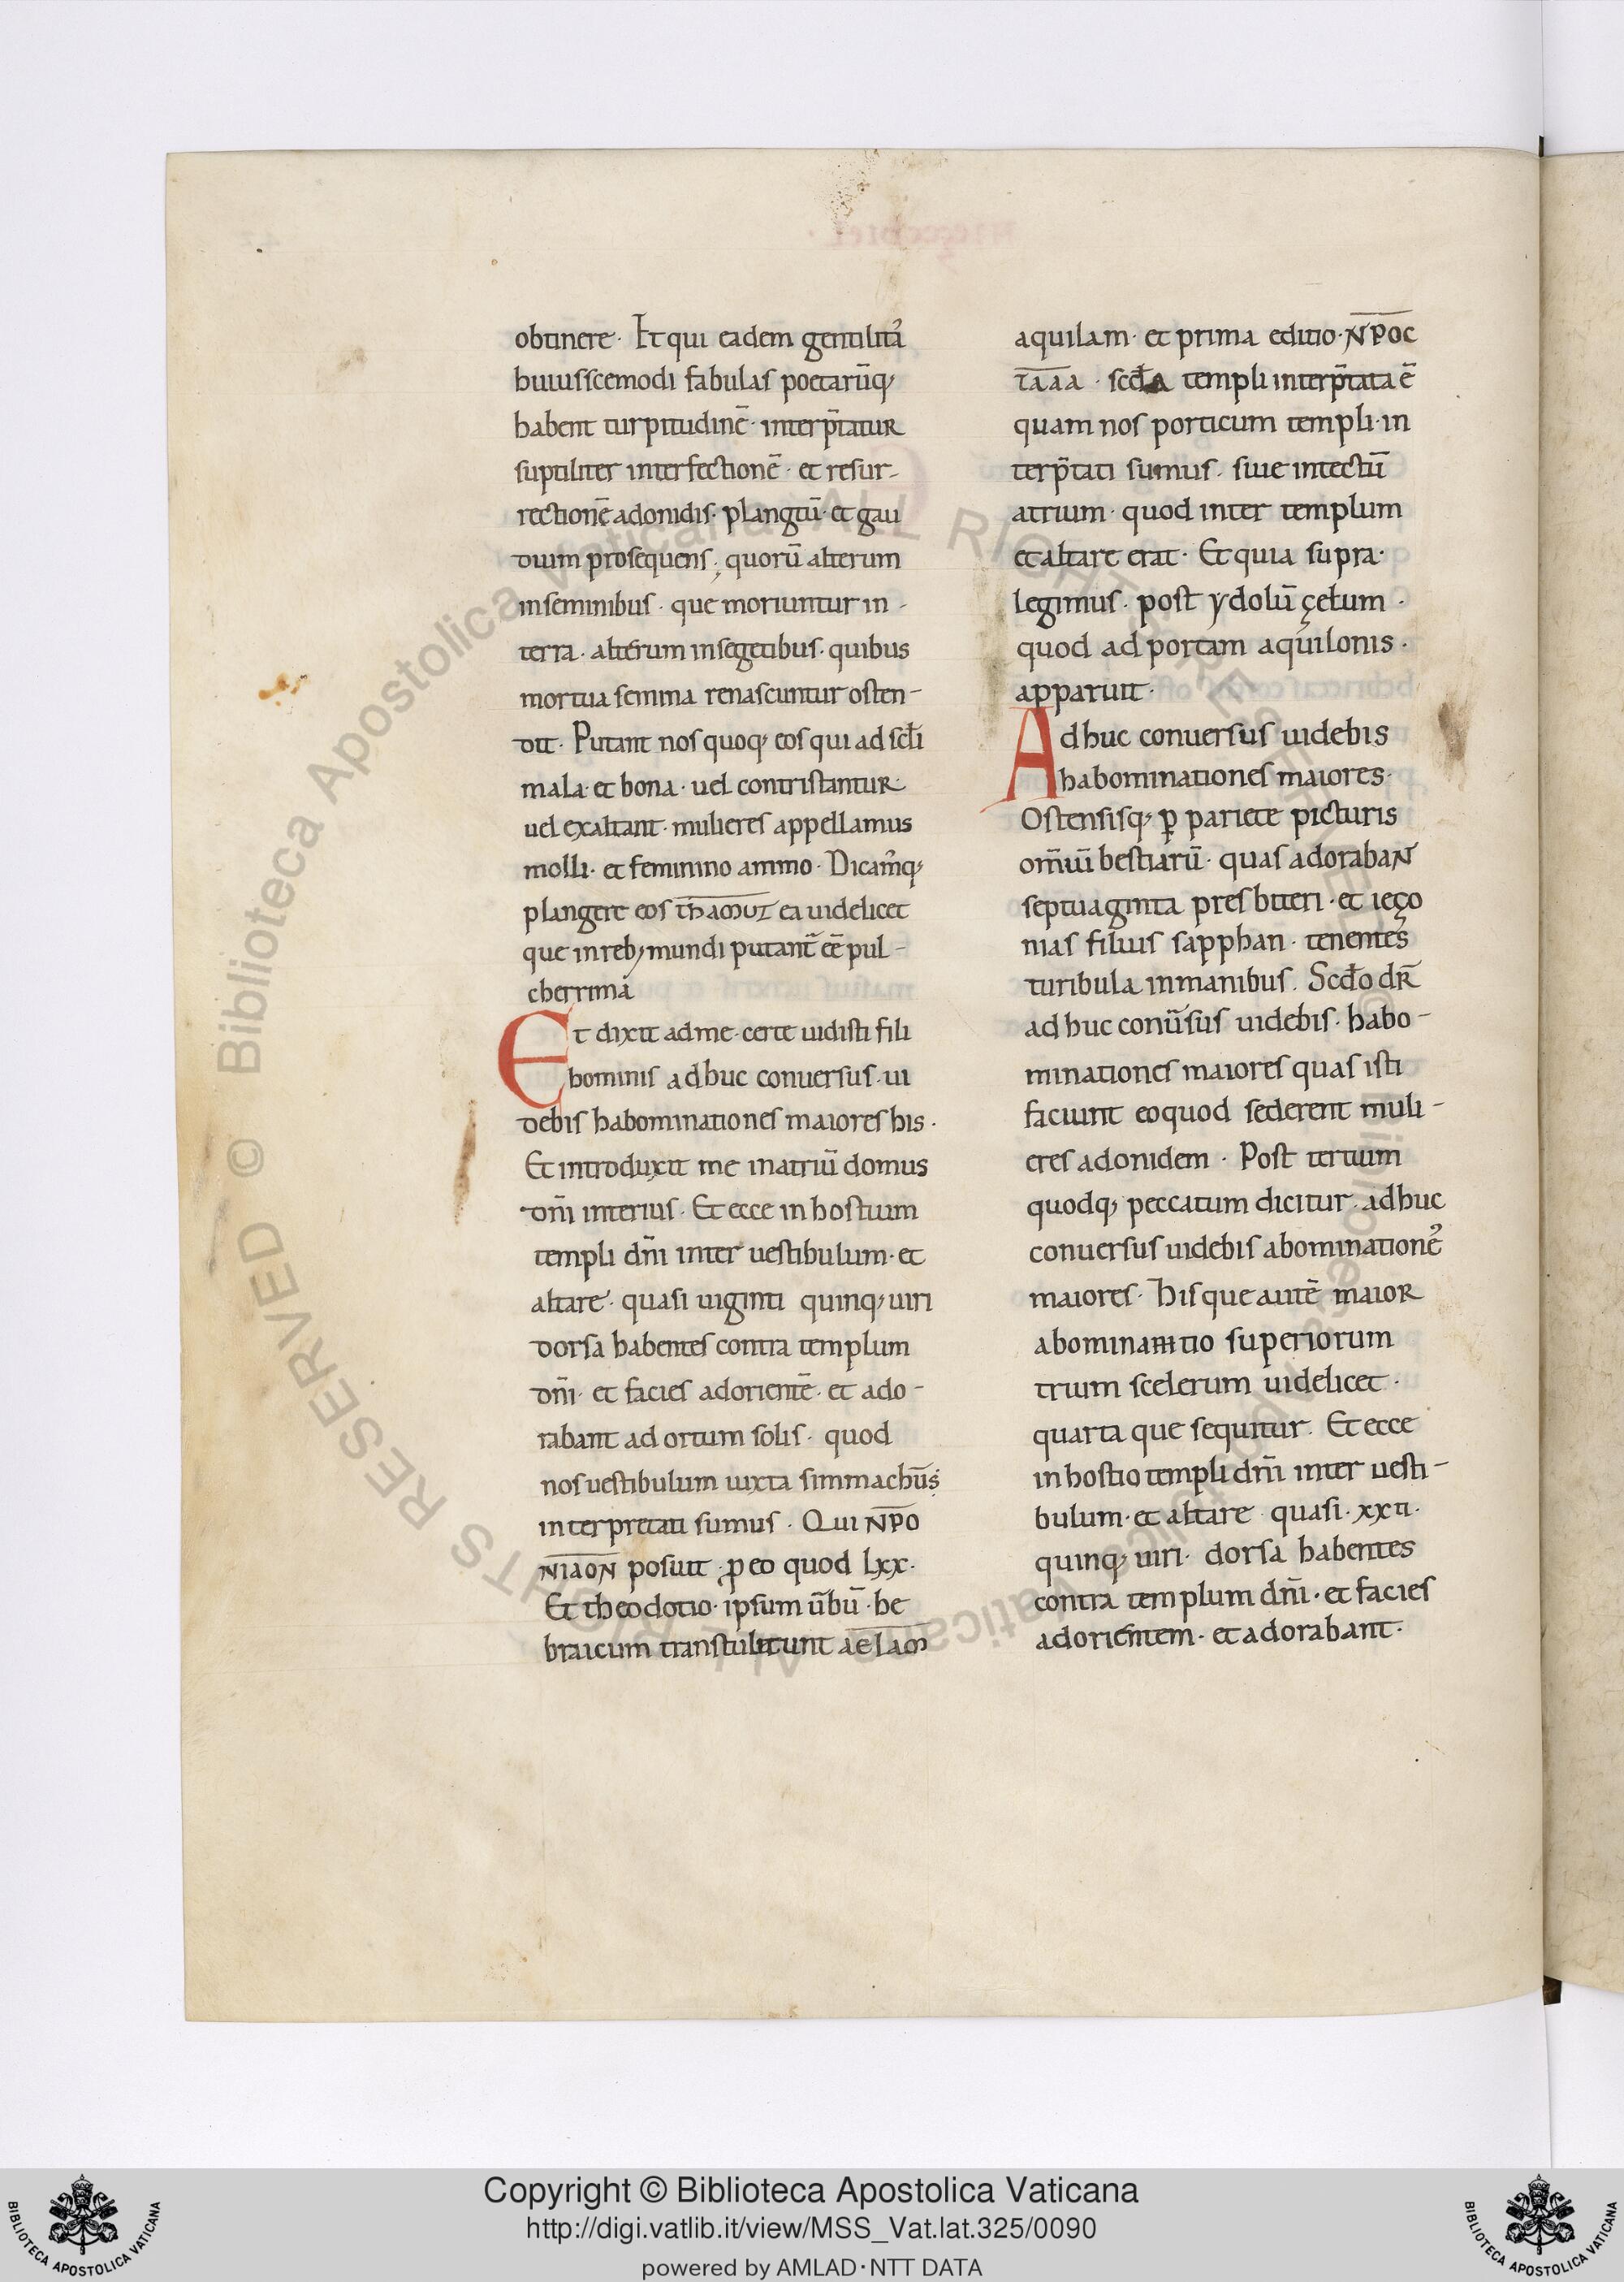 obtinere · Et qui eadem gentilita᷒
huiusscemodi fabulas poetarūq;
habent turpitudinē · interp̄tatur
suptiliter interfectionē · et resur-
rectionē adonidis · plangtū · et gau
dium prosequens · quorū alterum
in seminibus · que moriuntur in -
terra · alterum in segetibus · quibus
mortua semina renascuntur osten-
dit · Putant nos quoq; eos qui ad scl̄i
mala · et bona · uel contristantur ·
uel exaltant · mulieres appellamus
molli · et feminino animo · Dicam᷒q;
plangere eos thamuz ea uidelicet
que in reb; mundi putant᷒ ēē pul-
cherrima
Et dixit ad me · certe uidisti fili
hominis adhuc conuersus · ui
debis habominationes maiores his ·
Et introduxit me in atriū domus
dn̄i interius · Et ecce in hostium
templi dn̄i inter uestibulum · et
altare · quasi uiginti quinq; uiri
dorsa habentes contra templum
dn̄i · et facies ad orientē · et ado-
rabant ad ortum solis · quod
nos uestibulum iuxta simmachūs
interpretati sumus · Qui NPO
NIAON posuit · ꝓ eo quod lxx ·
Et theodotio · ipsum ūbū · he
braicum transtulerunt aelam
aquilam · et prima editio · NPOC
TAAA · scd̄a templi interp̄tata ē
quam nos porticum templi · in
terp̄tati sumus · siue intectū
atrium · quod inter templum
et altare erat · Et quia supra ·
legimus · post ydolū çelum ·
quod ad portam aquilonis ·
apparuit ·
Adhuc conuersus uidebis
habominationes maiores ·
Ostensisq; ꝑ pariete picturis
om̄iū bestiarū · quas adorabaN
septuaginta presbiteri · et ieço
nias filius sapphan · tenentes
turibula in manibus · Scd̄o dr̄
adhuc conūsus uidebis · habo-
minationes maiores quas isti
faciunt eo quod sederent muli-
eres adonidem · Post tertium
quodq; peccatum dicitur · adhuc
conuersus uidebis abominatione᷒
maiores · His que autē maior
abominamtio superiorum
trium scelerum uidelicet ·
quarta que sequitur · Et ecce
in hostio templi dn̄i inter uesti-
bulum · et altare quasi · xxti ·
quinq; uiri · dorsa habentes
contra templum dn̄i · et facies
ad orientem · et adorabant ·
Copyright © Biblioteca Apostolica Vaticana
http://digi.vatlib.it/view/MSS_Vat.lat.325/0090
powered by AMLAD·NTT DATA
BIBLIOTECA APOSTOLICA VATICANA
BIBLIOTECA APOSTOLICA VATICANA